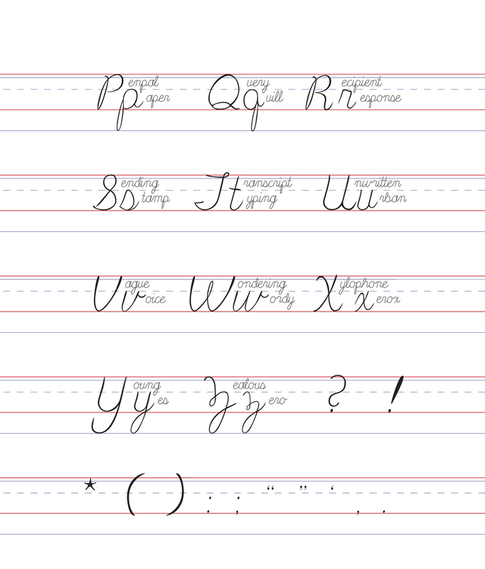 Pp enpal aper Qq uery uill Rr ecipient esponse
Ss ending tamp Tt ranscript yping Uu nwritten rban
Vv ague oice Ww ondering ordy Xx ylophone erox
Yy oung es Zz ealous ero ? !
* ( ) : ; “ ” ‘ , .